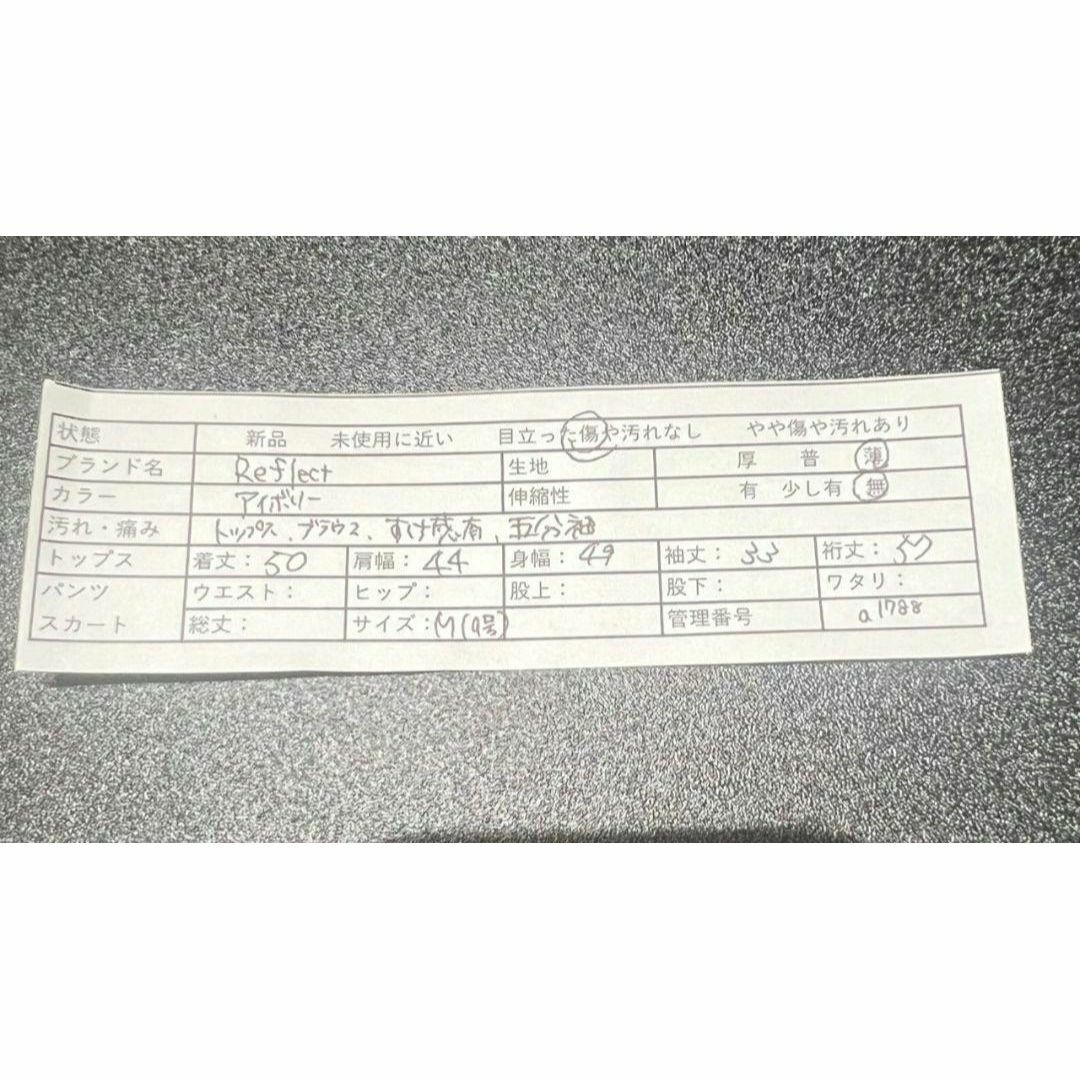 状態 新品 未使用に近い 目立った傷や汚れなし やや傷や汚れあり
ブランド名 Reflect 生地 厚 普 薄
カラー アイボリー 伸縮性 有 少し有 無
汚れ・痛み トップス、ブラウス、すけ感有、五分袖
トップス 着丈：50 肩幅：44 身幅：49 袖丈：33 裄丈：
パンツ ウエスト： ヒップ： 股上： 股下： ワタリ：
スカート 総丈： サイズ：M(9号) 管理番号 a1788